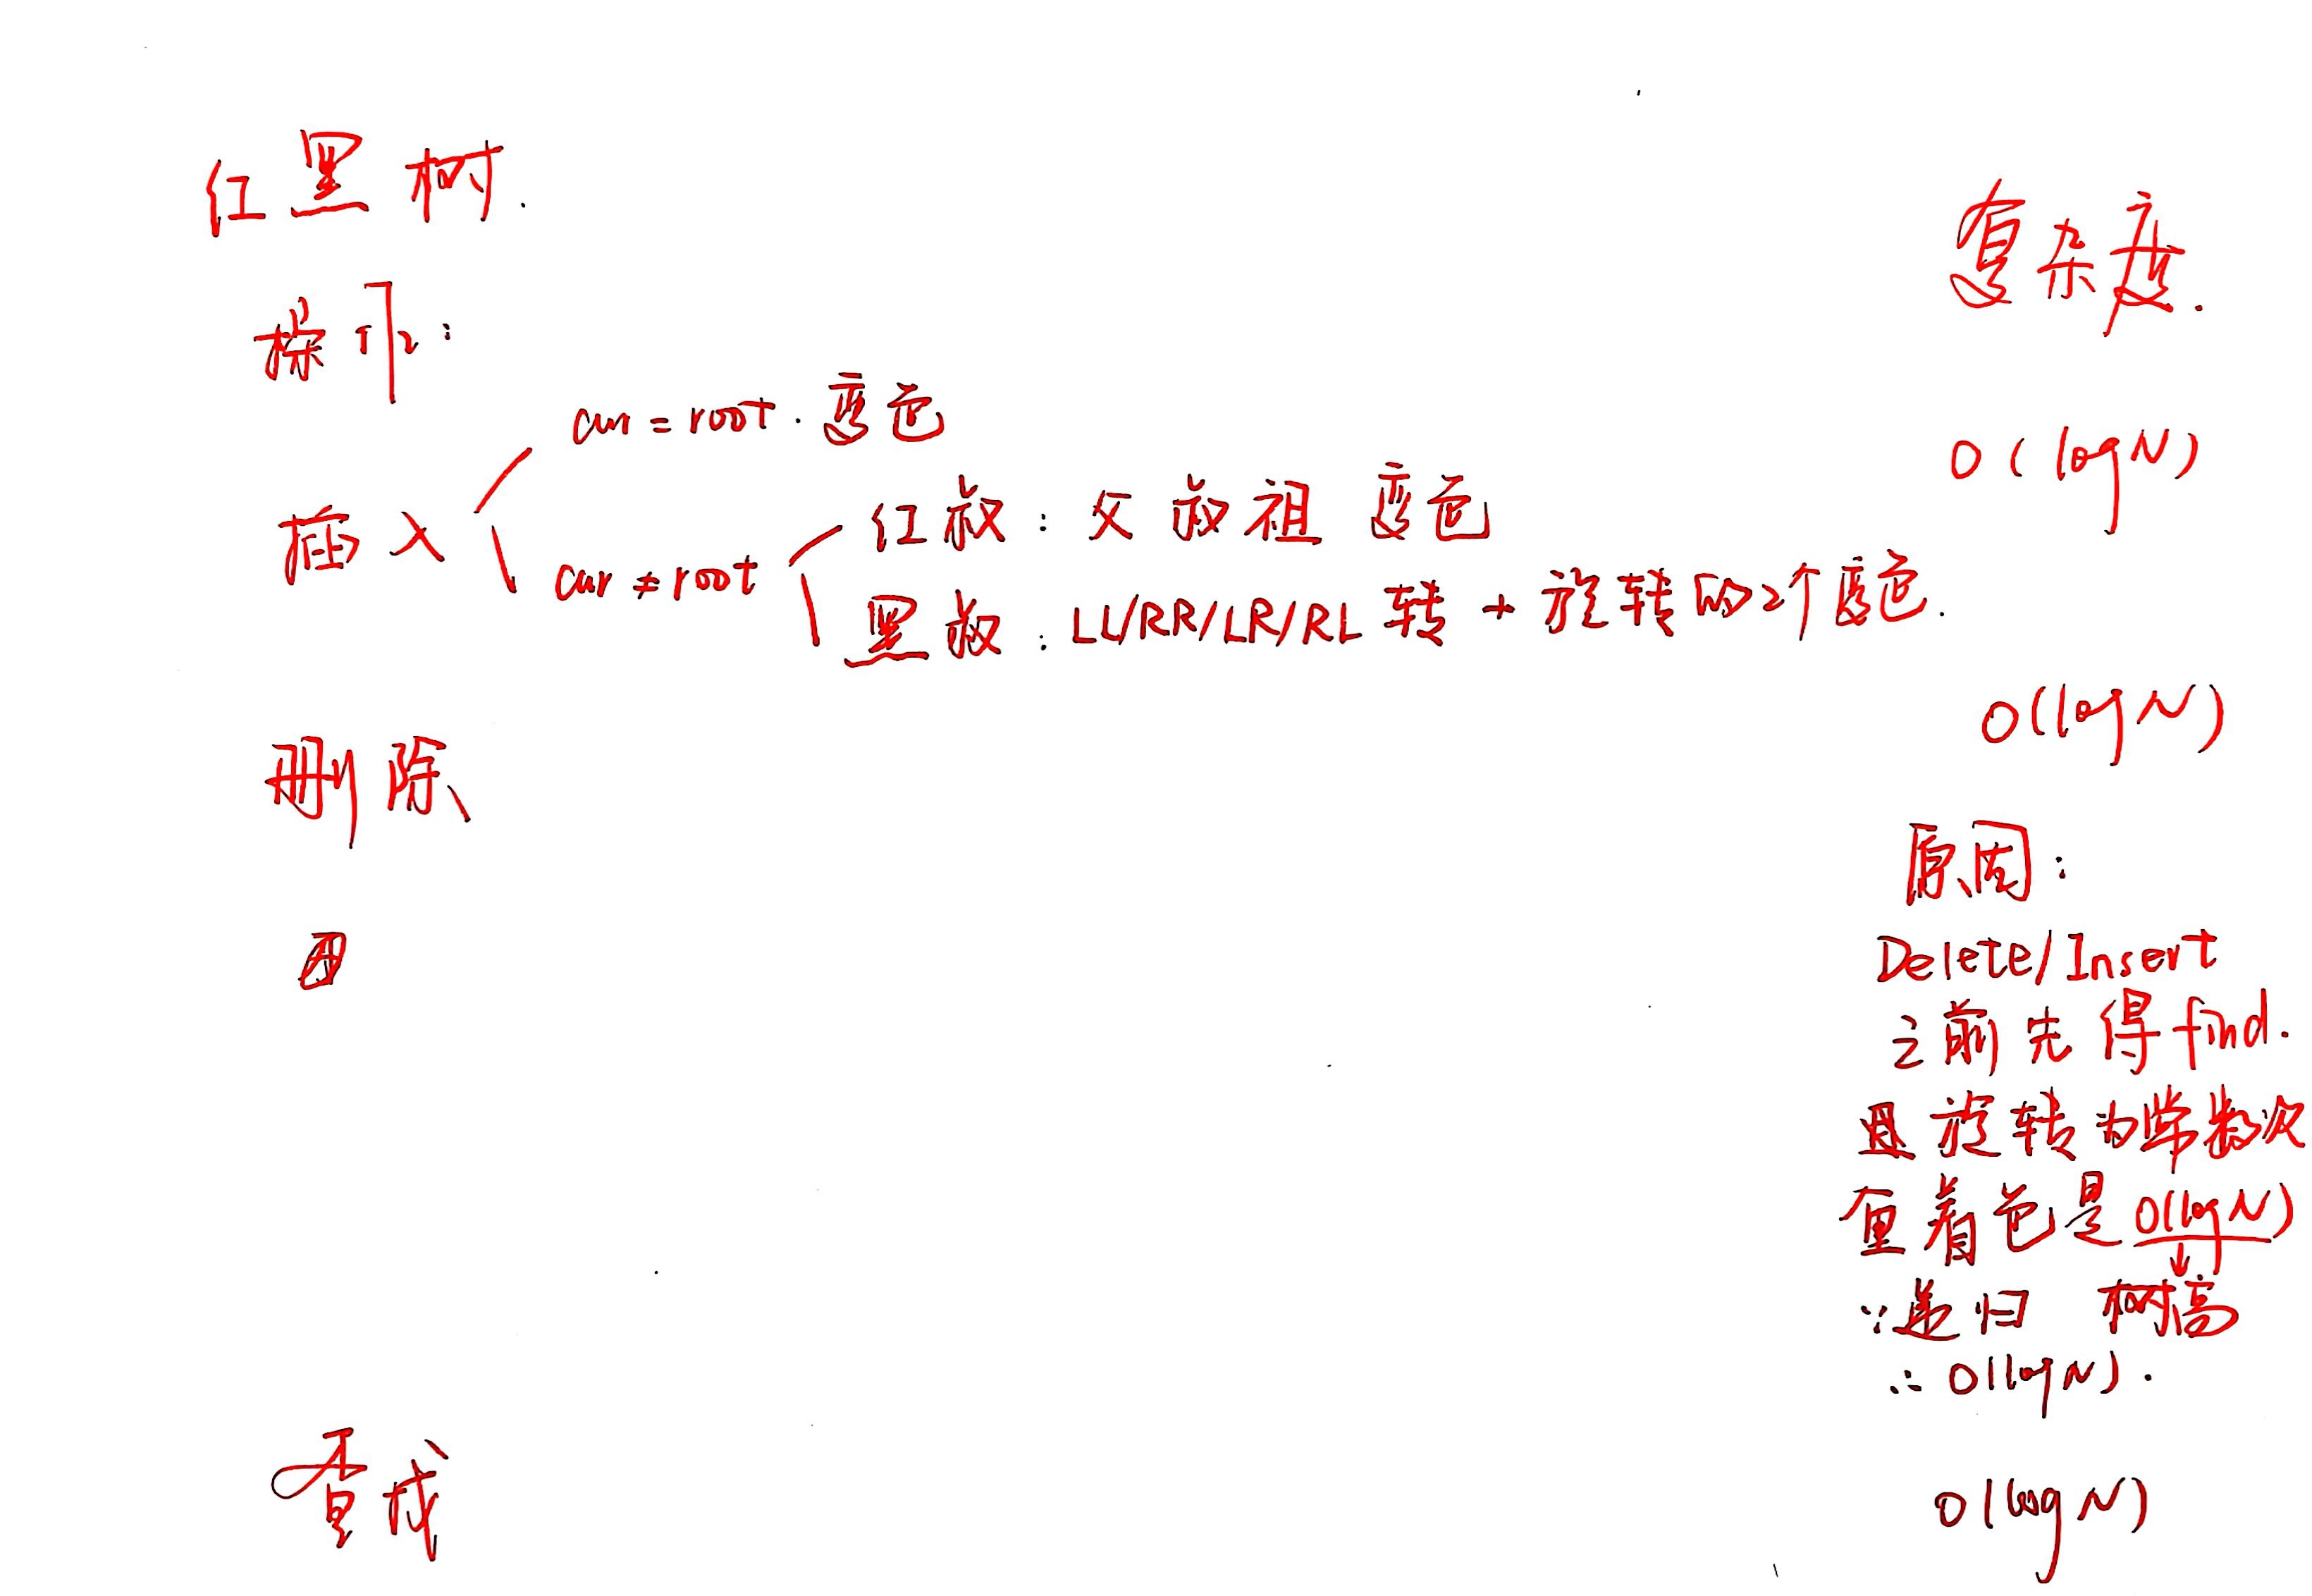 红黑树.
复杂度.
操作:
cur = root. 变色
O(logN)
插入
红叔: 父叔祖 变色
cur ≠ root
黑叔: LL/RR/LR/RL 转 + 旋转的2个变色.
O(logN)
删除
原因:
Delete/Insert
之前先得find.
且旋转为常数次
重着色是O(logN)
∵递归 树高
∴ O(logN).
查找
O(logN)